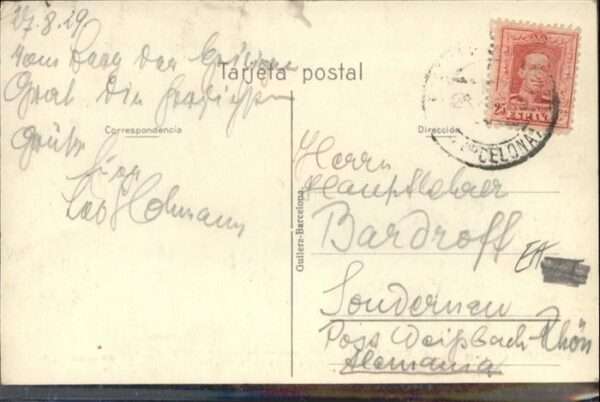 27.8.29.
Vom Berg der Heiligen
Gral die herzlichsten
Grüße
Holmann
Tarjeta postal
Correspondencia
Dirección
Guilera-Barcelona
25
ESPAÑA
BARCELONA
Herrn
Hauptlehrer
Bardroff
Sondernau
Post Weißbach-Rhön
Alemania